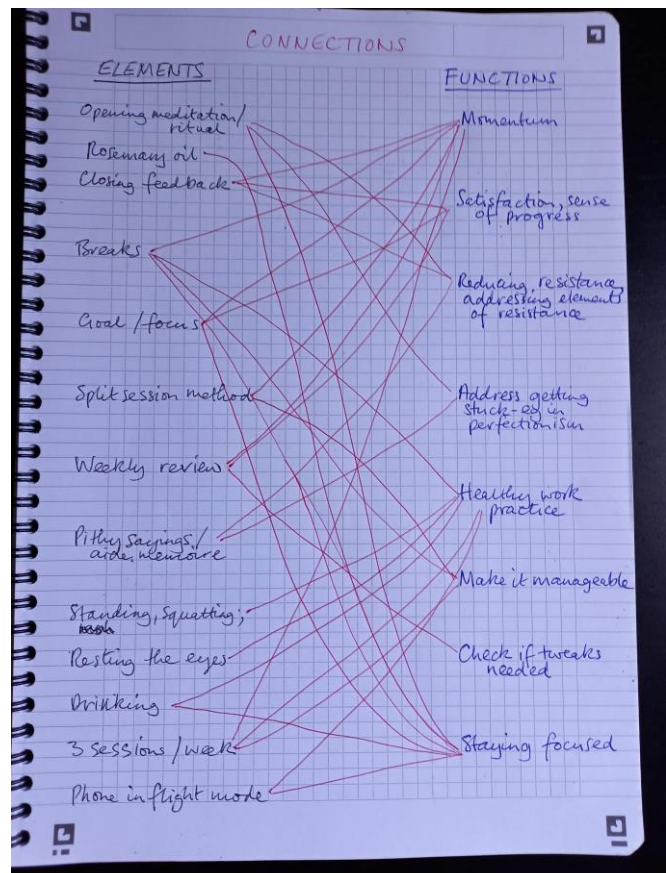 CONNECTIONS
ELEMENTS
Opening meditation/
ritual
Rosemary oil
Closing feedback
Breaks
Goal/focus
Split session method
Weekly review
Pithy sayings/
aide memoire
Standing, squatting,
Resting the eyes
Drinking
3 sessions/week
Phone in flight mode
FUNCTIONS
Momentum
Satisfaction, sense
of progress
Reducing resistance,
addressing elements
of resistance
Address getting
stuck - eg in
perfectionism
Healthy work
practice
Make it manageable
Check if tweaks
needed
Staying focused